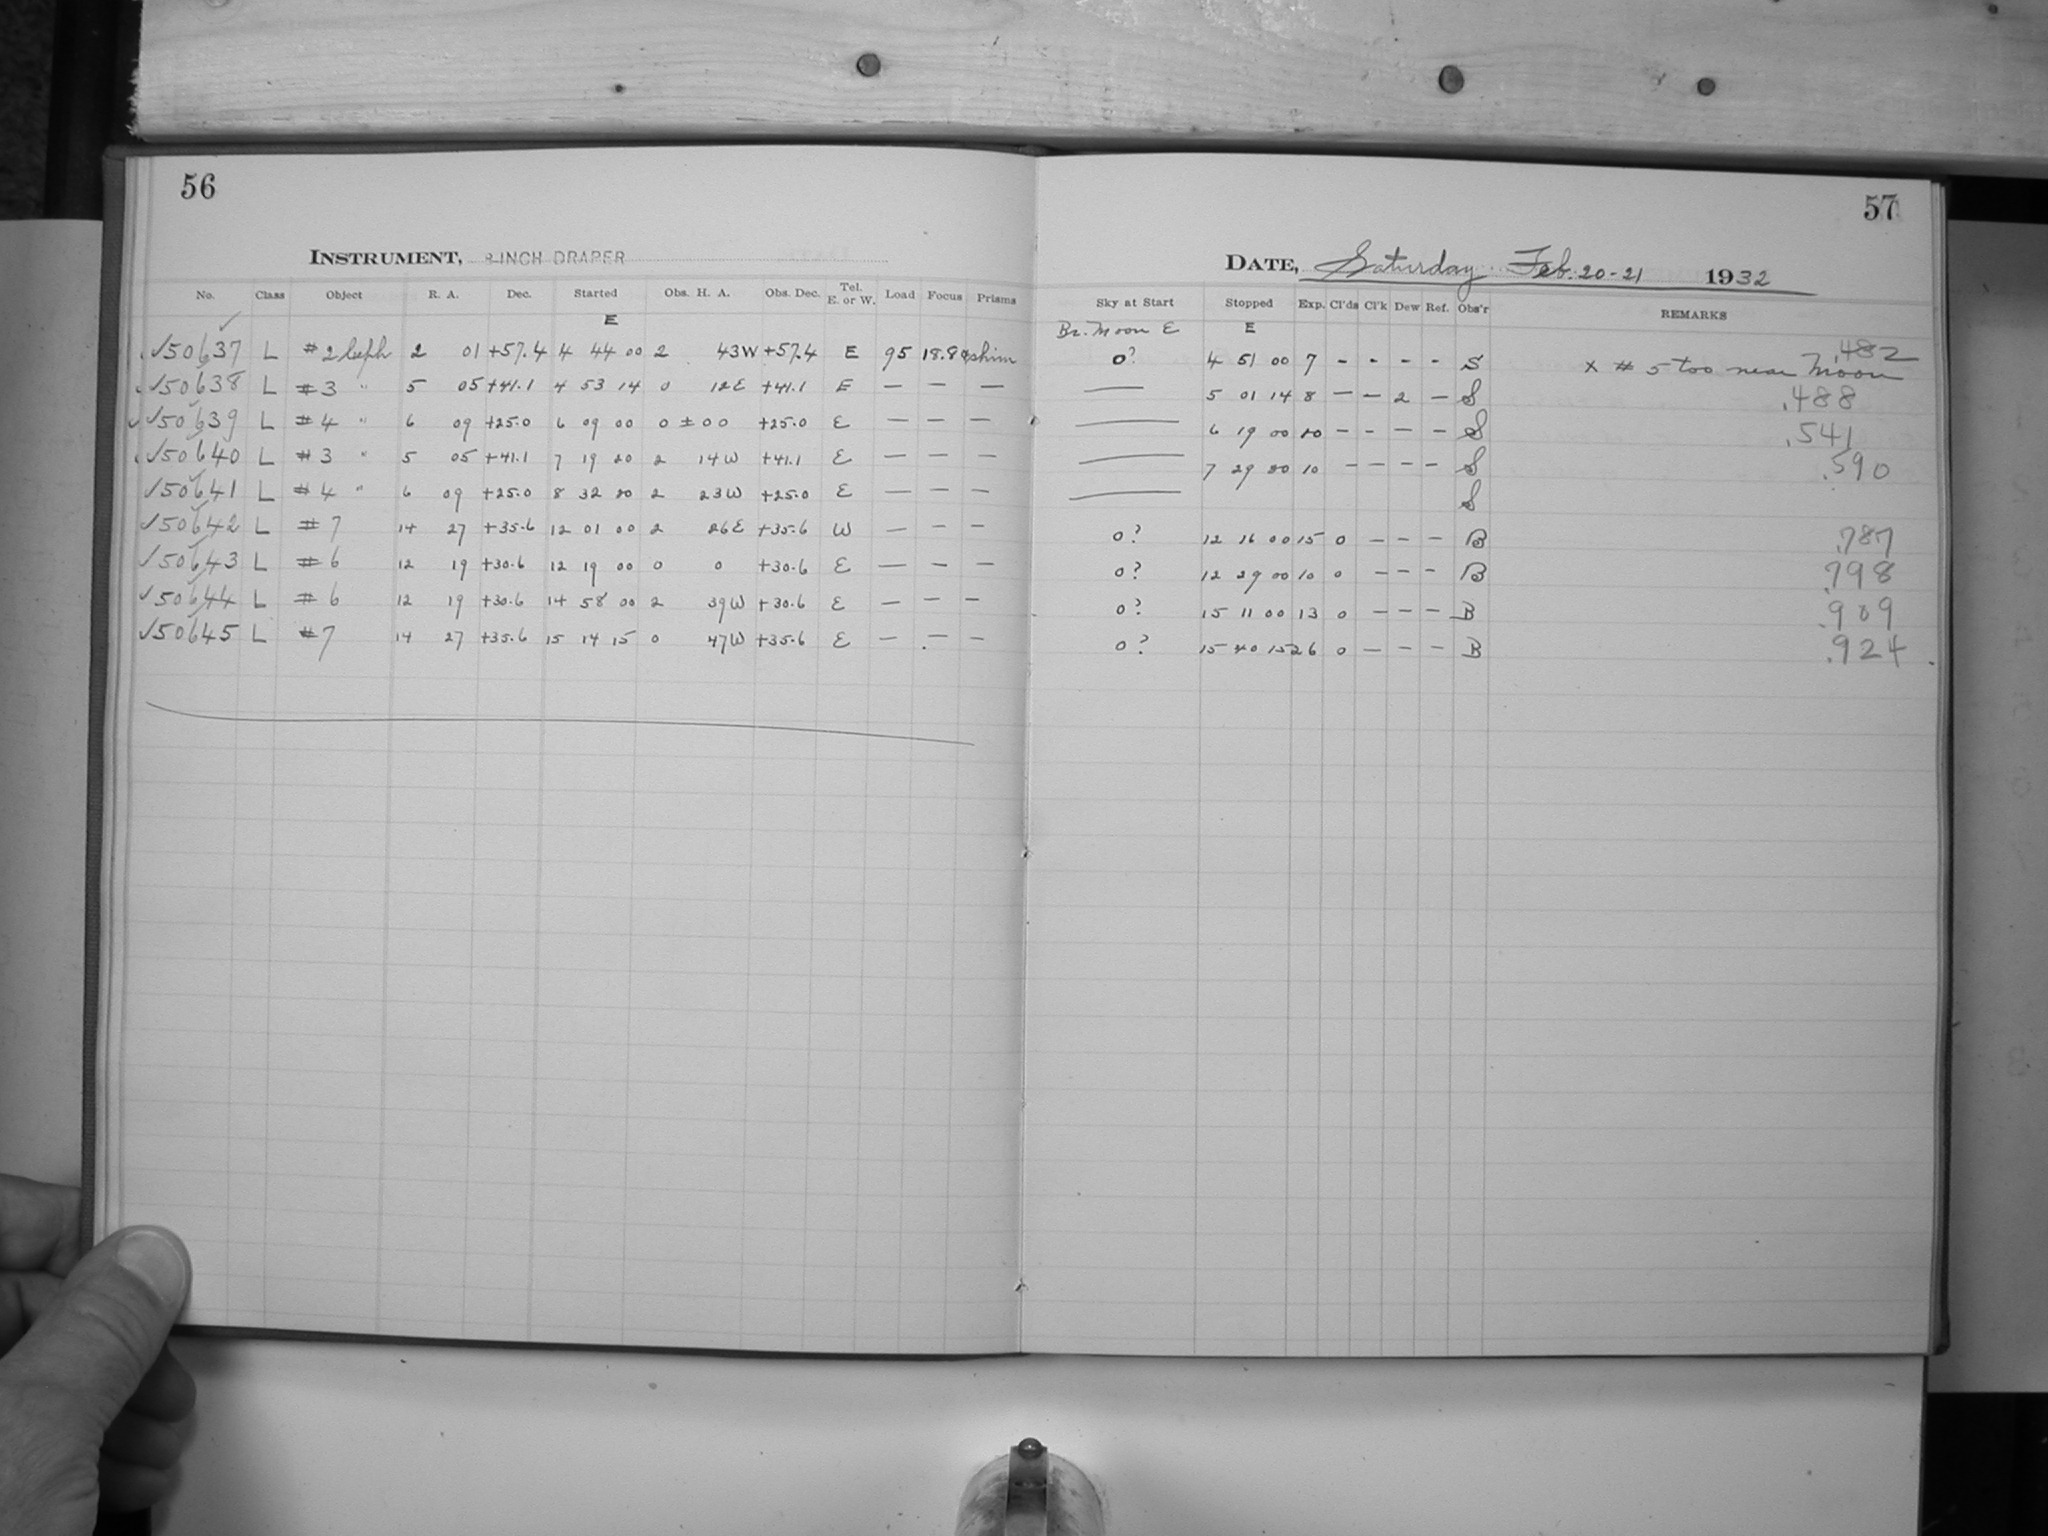 56
INSTRUMENT, 8 INCH DRAPER
No. Class Object R. A. Dec. Started Obs. H. A. Obs. Dec. Tel. E. or W. Load Focus Prisms
E
√50637 L #2 Ceph 2 01 +57.4 4 44 00 2 43W +57.4 E 95 18.8 shim
√50638 L #3 " 5 05 +41.1 4 53 14 0 12E +41.1 E — — —
√50639 L #4 " 6 09 +25.0 6 09 00 0 ± 00 +25.0 E — — —
√50640 L #3 " 5 05 +41.1 7 19 20 2 14W +41.1 E — — —
√50641 L #4 " 6 09 +25.0 8 32 20 2 23W +25.0 E — — —
√50642 L #7 14 27 +35.6 12 01 00 2 26E +35.6 W — — —
√50643 L #6 12 19 +30.6 12 19 00 0 0 +30.6 E — — —
√50644 L #6 12 19 +30.6 14 58 00 2 39W +30.6 E — — —
√50645 L #7 14 27 +35.6 15 14 15 0 47W +35.6 E — — —
57
DATE, Saturday Feb. 20-21 1932
Sky at Start Stopped Exp. Cl'ds Cl'k Dew Ref. Obs'r REMARKS
Br. Moon E E
.482
0? 4 51 00 7 - - - - S x # 5 too near Moon
— 5 01 14 8 — — 2 — S .488
— 6 19 00 10 — — — — S .541
— 7 29 20 10 — — — — S .590
— S
0? 12 16 00 15 0 — — — B .787
0? 12 29 00 10 0 — — — B .798
0? 15 11 00 13 0 — — — B .909
0? 15 40 15 26 0 — — — B .924